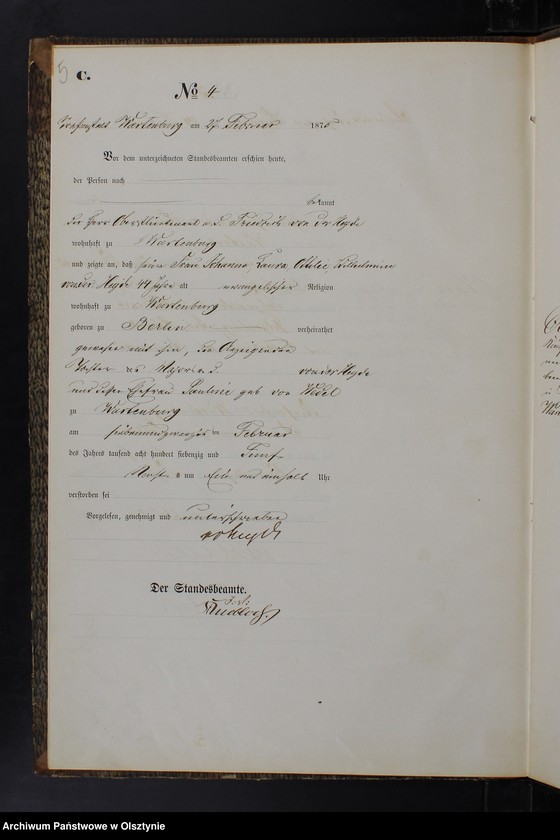 5 C.
No 4
Wartenburg am 27 Februar 1875
Vor dem unterzeichneten Standesbeamten erschien heute,
der Person nach
bekannt
der Herr Oberstlieutenant a. D. Friedrich von der Heyde
wohnhaft zu Wartenburg
und zeigte an, daß seine Frau Johanna, Laura, Ottilie, Wilhelmine
von der Heyde 44 Jahre alt evangelischer Religion
wohnhaft zu Wartenburg
geboren zu Berlin verheirathet
gewesen mit ihm, dem Anzeigenden
Tochter des Majors a. D. von der Heyde
und dessen Ehefrau Pauline geb von Wedel
zu Wartenburg
am siebenundzwanzigsten Februar
des Jahrs tausend acht hundert siebenzig und Fünf
um Ein und einhalb Uhr
verstorben sei
Vorgelesen, genehmigt und unterschrieben
vdHeyde
Der Standesbeamte.
Archiwum Państwowe w Olsztynie